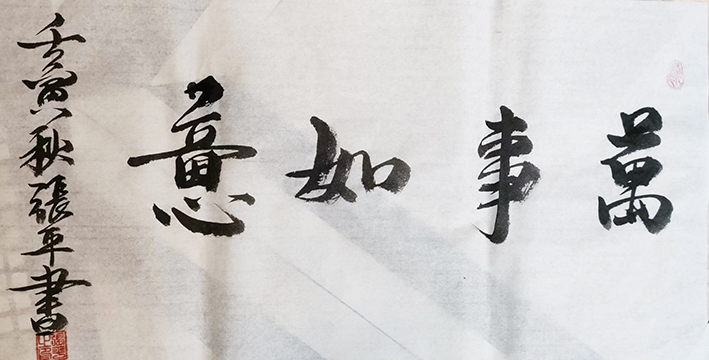 萬事如意
壬寅秋張平書